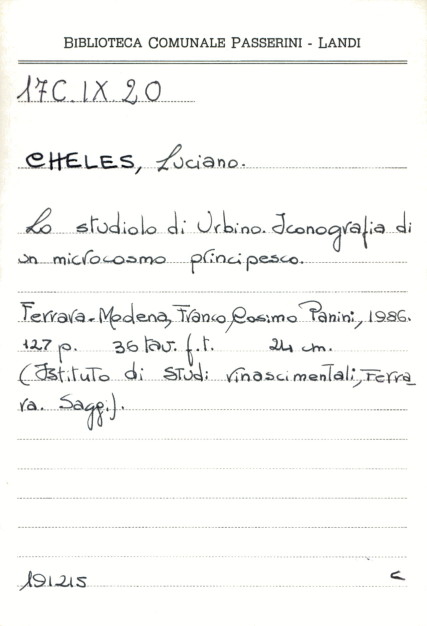 BIBLIOTECA COMUNALE PASSERINI - LANDI
17C.IX 20
CHELES, Luciano.
Lo studiolo di Urbino. Iconografia di
un microcosmo principesco.
Ferrara-Modena, Franco Cosimo Panini, 1986.
127 p. 36 tav. f.t. 24 cm.
(Istituto di Studi rinascimentali, Ferra
ra. Saggi).
191215 C